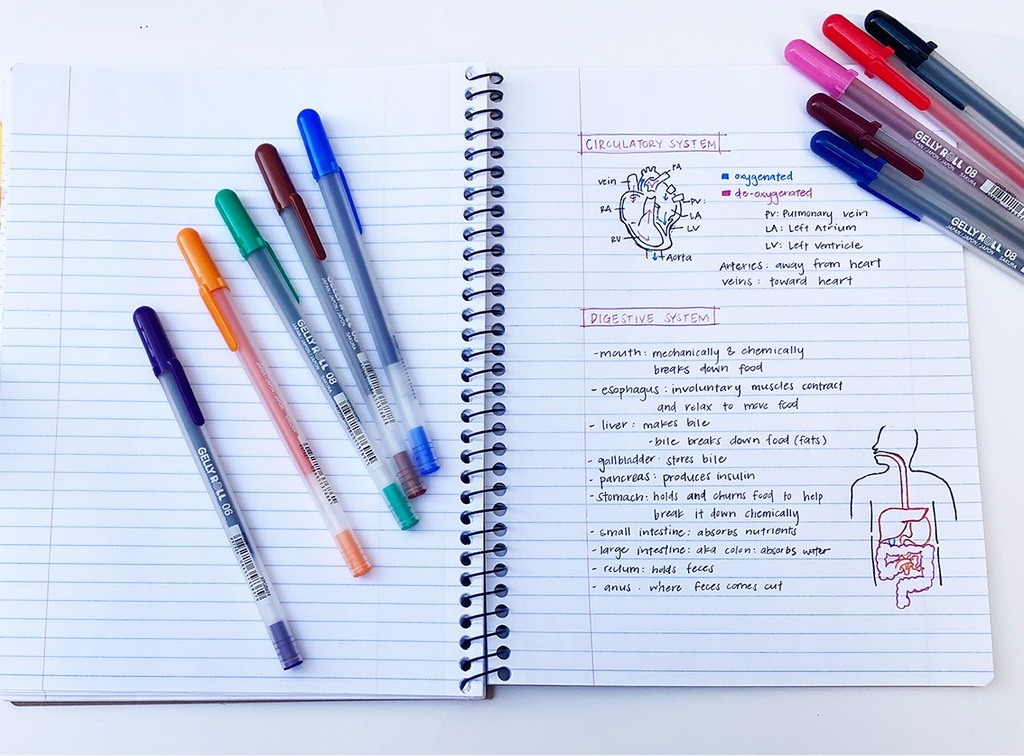 CIRCULATORY SYSTEM
vein
PA
RA
PV
LA
LV
RV
Aorta
oxygenated
de-oxygenated
PV: Pulmonary vein
LA: Left Atrium
LV: Left Ventricle
Arteries: away from heart
veins: toward heart
DIGESTIVE SYSTEM
- mouth: mechanically & chemically
breaks down food
- esophagus: involuntary muscles contract
and relax to move food
- liver: makes bile
- bile breaks down food (fats)
- gallbladder: stores bile
- pancreas: produces insulin
- stomach: holds and churns food to help
break it down chemically
- small intestine: absorbs nutrients
- large intestine: aka colon: absorbs water
- rectum: holds feces
- anus: where feces comes out
GELLY ROLL 06
GELLY ROLL 08
JAPAN/JAPON/JAPON SAKURA
GELLY ROLL 08
JAPAN/JAPON/JAPON SAKURA
GELLY ROLL 08
JAPAN/JAPON/JAPON SAKURA